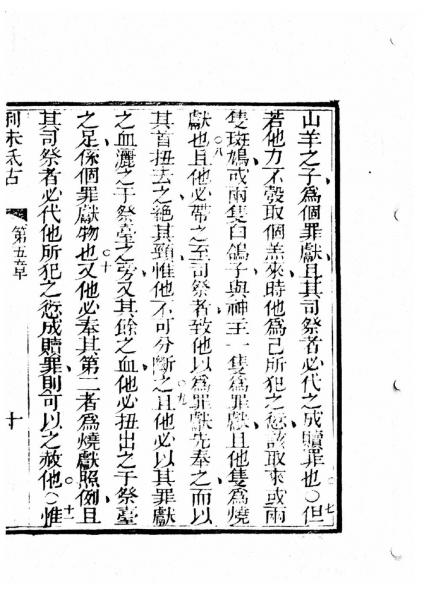 山羊之子爲個罪獻且其司祭者必代之成贖罪也○七但
若他力不彀取個羔來時他爲己所犯之愆該取來或兩
隻斑鳩或兩隻白鴿子與神主一隻爲罪獻且他隻爲燒
獻也○八且他必帶之至司祭者致他以爲罪獻先奉之而以
其首扭去之絕其頸惟他不可分斷之○九且他必以其罪獻
之血灑之于祭臺之旁又其餘之血他必扭出之于祭臺
之足係個罪獻物也○十又他必奉其第二者爲燒獻照例且
其司祭者必代他所犯之愆成贖罪則可以之赦他○十一惟
利未氏古 第五章 十